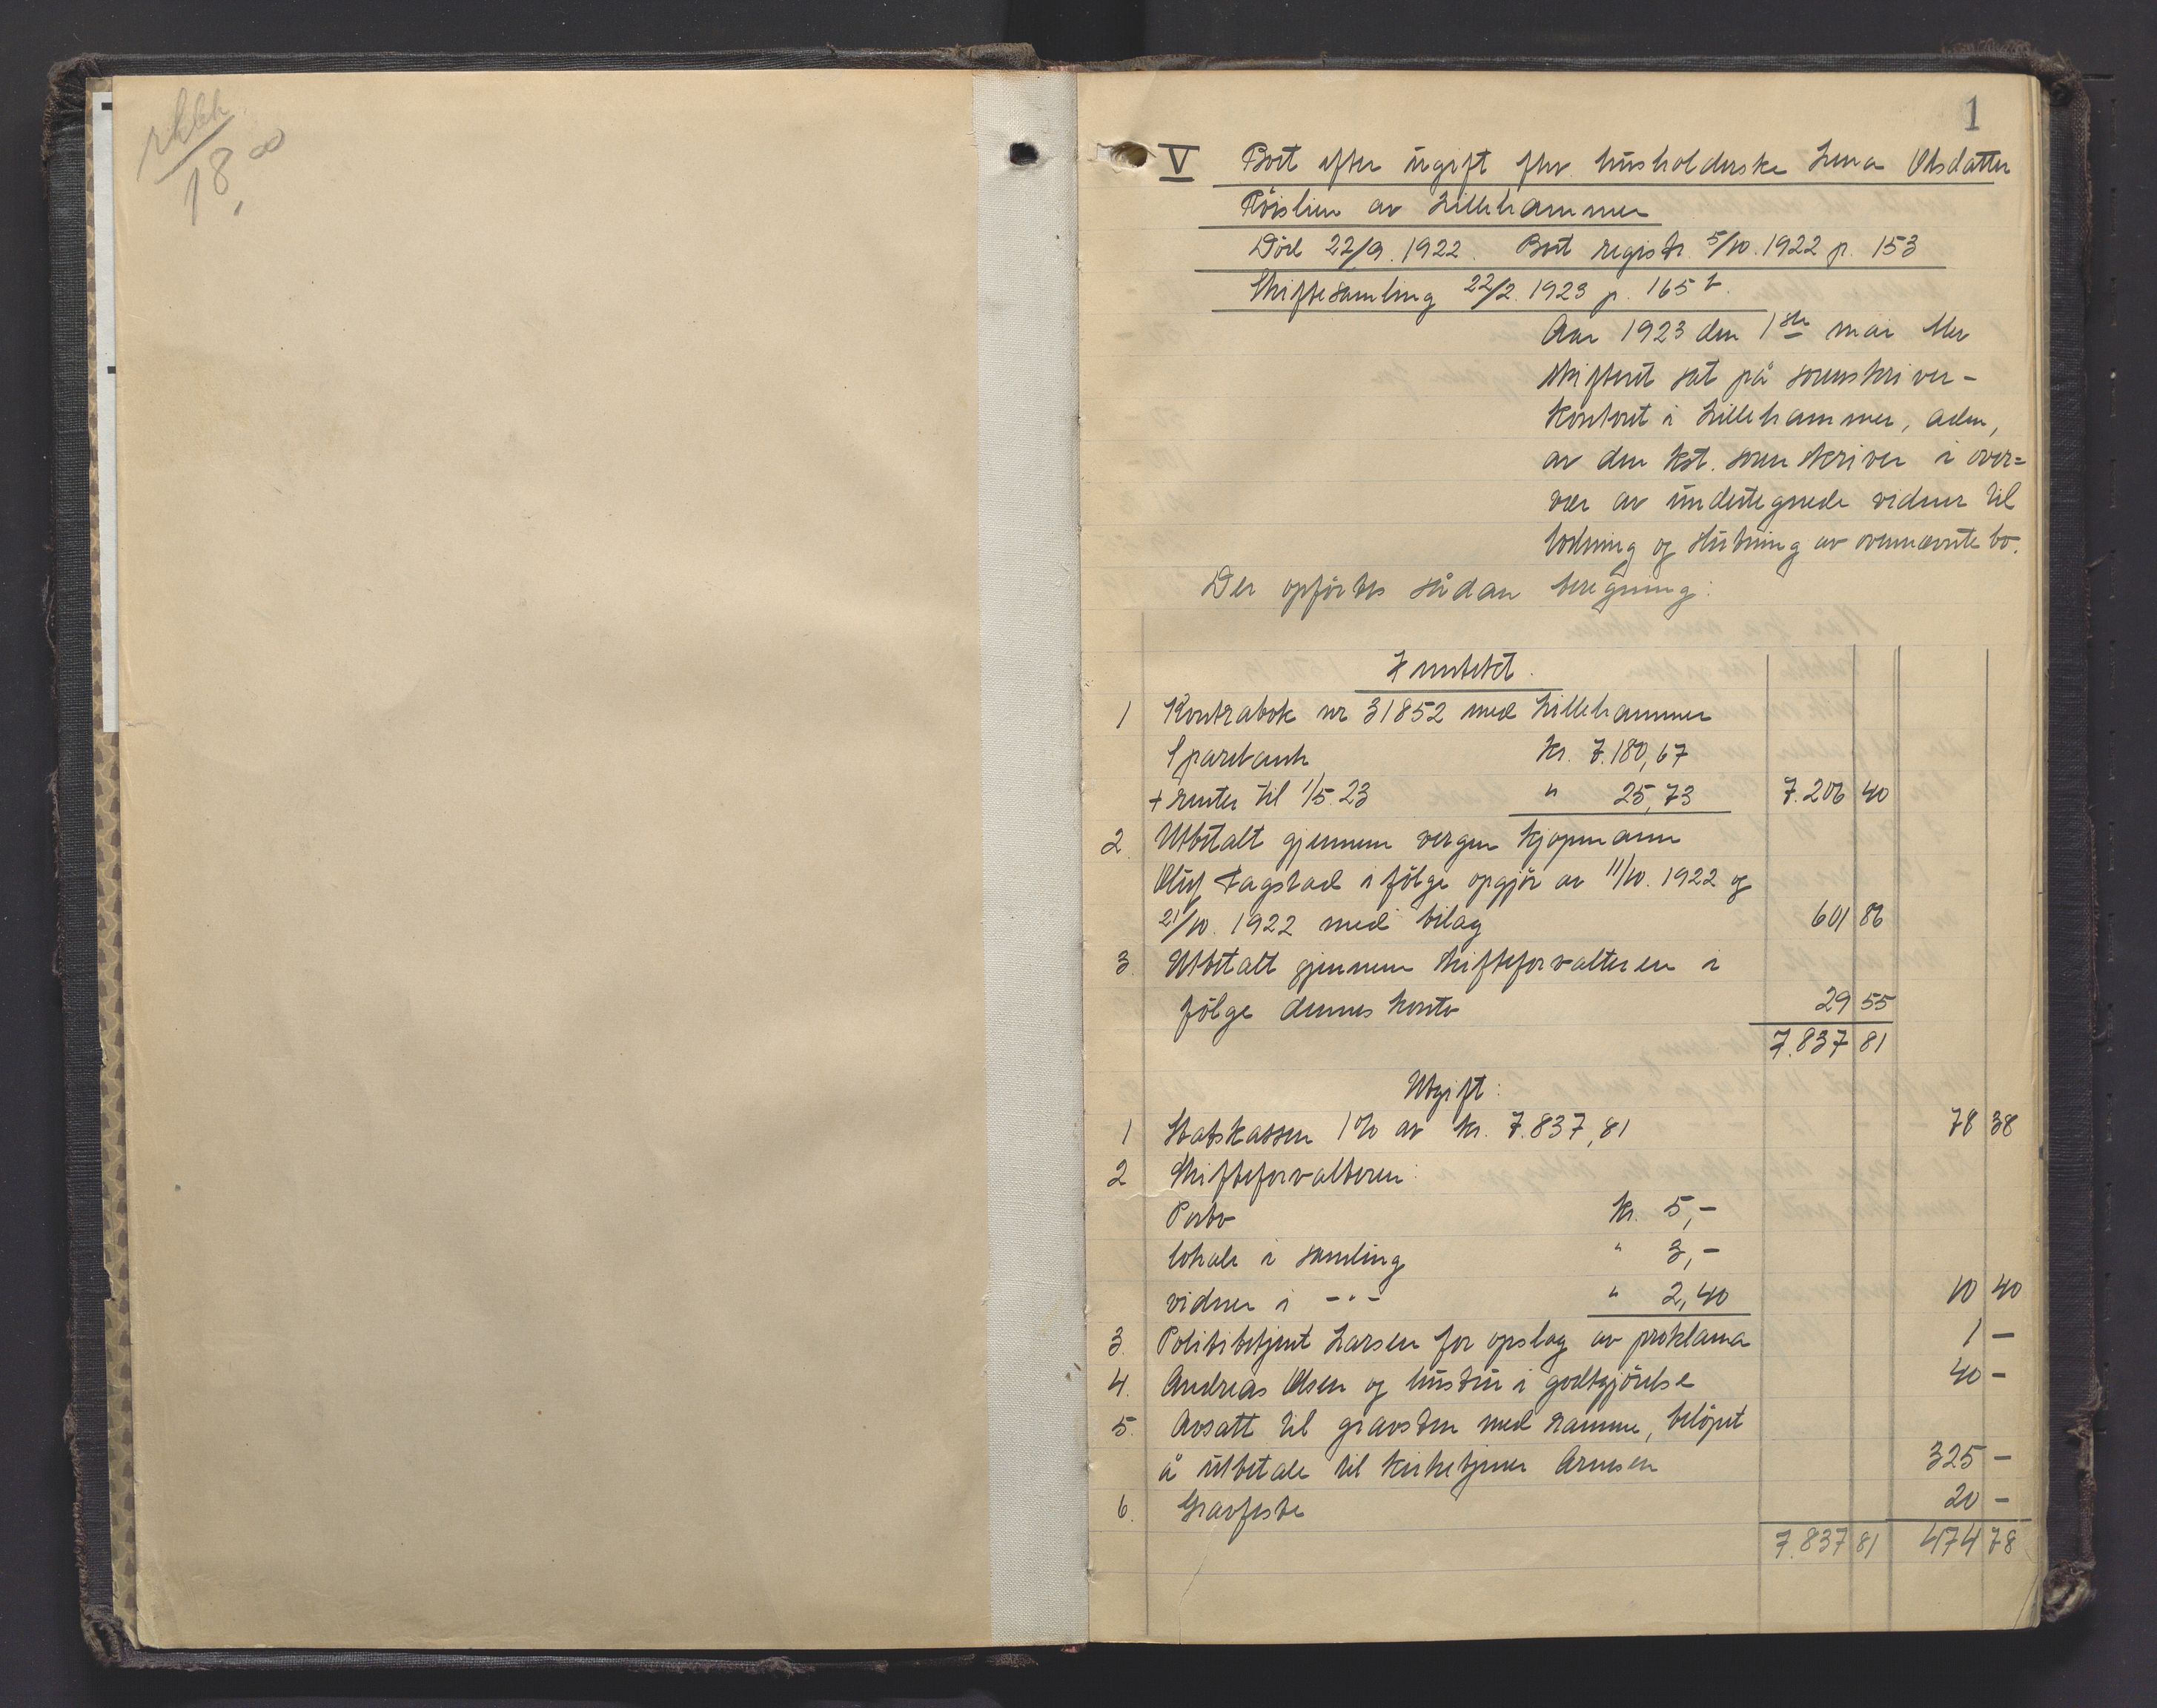 18,00
1
V Boet efter ugift fhv. husholderske Lena Olsdatter
Röislien av Lillehammer
Död 22/9.1922. Boet registr. 5/10.1922 p. 153
Skiftesamling 22/2.1923 p. 165 b.
Aar 1923 den 1ste mai blev
skifteret sat på sorenskriver-
kontoret i Lillehammer, adm,
av den kst. sorenskriver i over=
vær av undertegnede vidner til
lodning og slutning av ovennævnte bo.
Der opförtes sådan beregning:
Inntekt.
1 Kontrabok nr 31852 med Lillehammer
Sparebank kr. 7.180,67
+ renter til 1/5.23 " 25,73 7.206 40
2. Utbetalt gjennem vergen kjøpmann
Oluf Fagstad i følge opgjör av 11/10.1922 og
21/10.1922 med bilag 601 86
3. Utbetalt gjennem skifteforvalteren i
fölge dennes konto 29 55
7.837 81
Utgift:
1 Statskassen 1% av kr. 7.837,81 78 38
2 Skifteforvalteren:
Porto kr. 5,-
lokale i samling " 3,-
vidner i -"- " 2,40 10 40
3. Politibetjent Larsen for opslag av proklama 1 -
4. Andreas Olsen og hustru i godtgjörelse 40 -
5. Avsatt til gravsten med ramme, belöpet
å utbetale til kirketjener Arnesen 325 -
6. Gravfeste 20 -
7.837 81 474 78